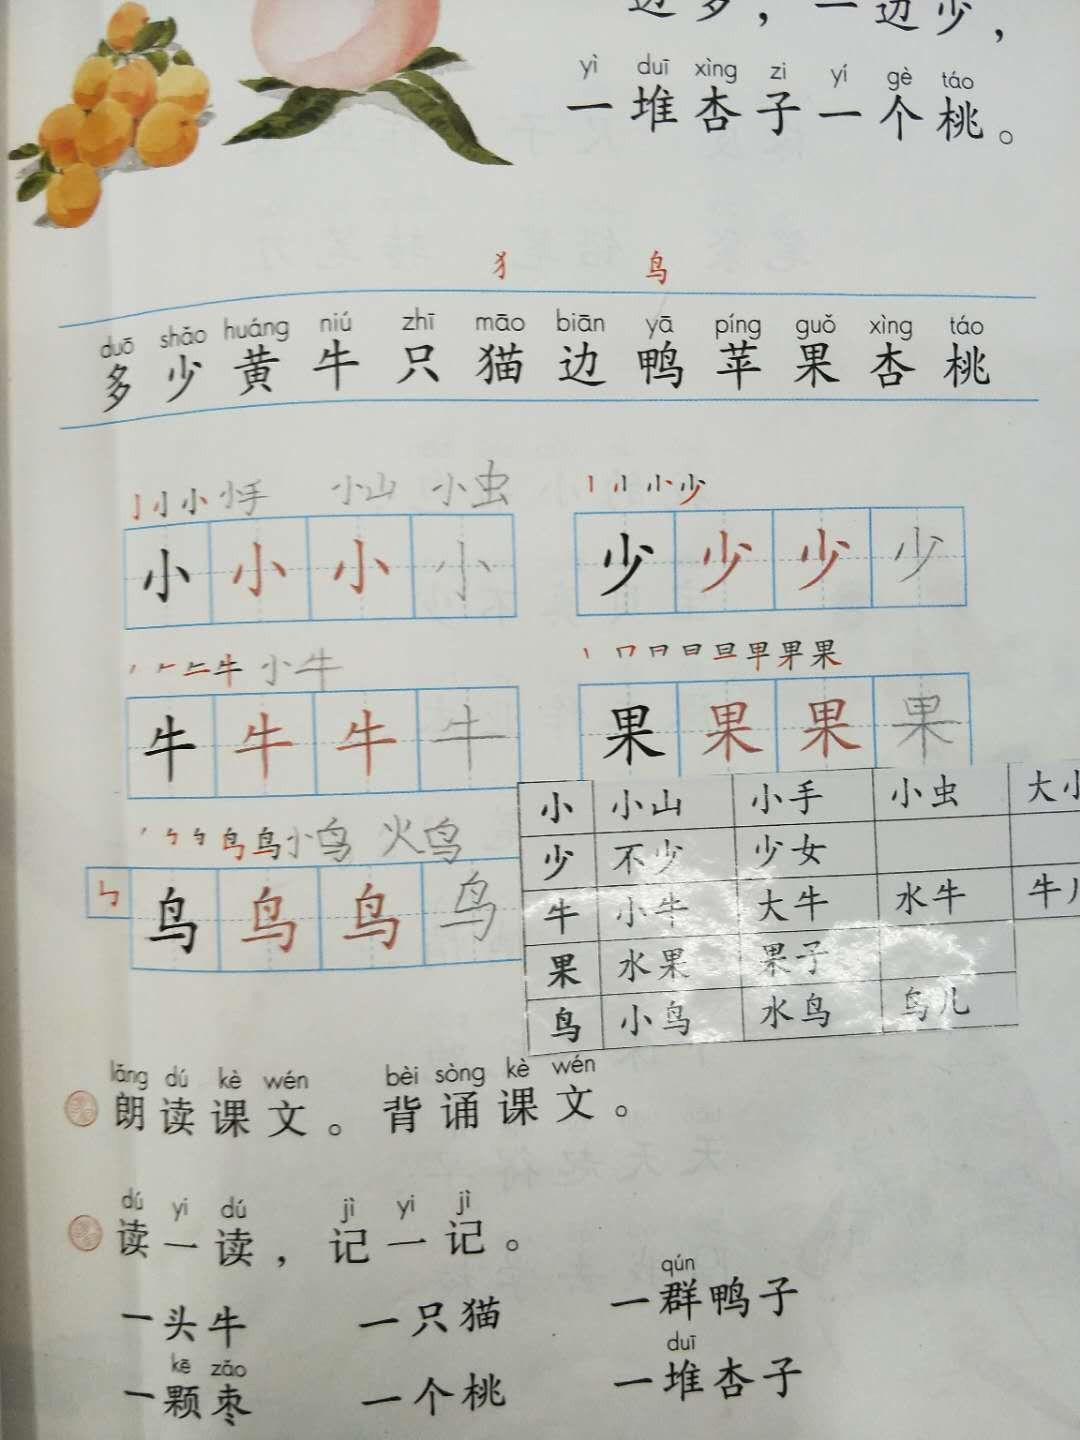 边多，一边少，
yì duī xìng zi yí gè táo
一堆杏子一个桃。
犭 鸟
duō shǎo huáng niú zhī māo biān yā píng guǒ xìng táo
多少黄牛只猫边鸭苹果杏桃
小手 小山 小虫
小小小小
少少少少
小牛
牛牛牛牛
果果果果
小鸟 火鸟
鸟鸟鸟鸟
小 小山 小手 小虫 大小
少 不少 少女
牛 小牛 大牛 水牛 牛儿
果 水果 果子
鸟 小鸟 水鸟 鸟儿
lǎng dú kè wén bèi sòng kè wén
朗读课文。背诵课文。
dú yi dú jì yi jì
读一读，记一记。
qún
一头牛 一只猫 一群鸭子
kē zǎo duī
一颗枣 一个桃 一堆杏子